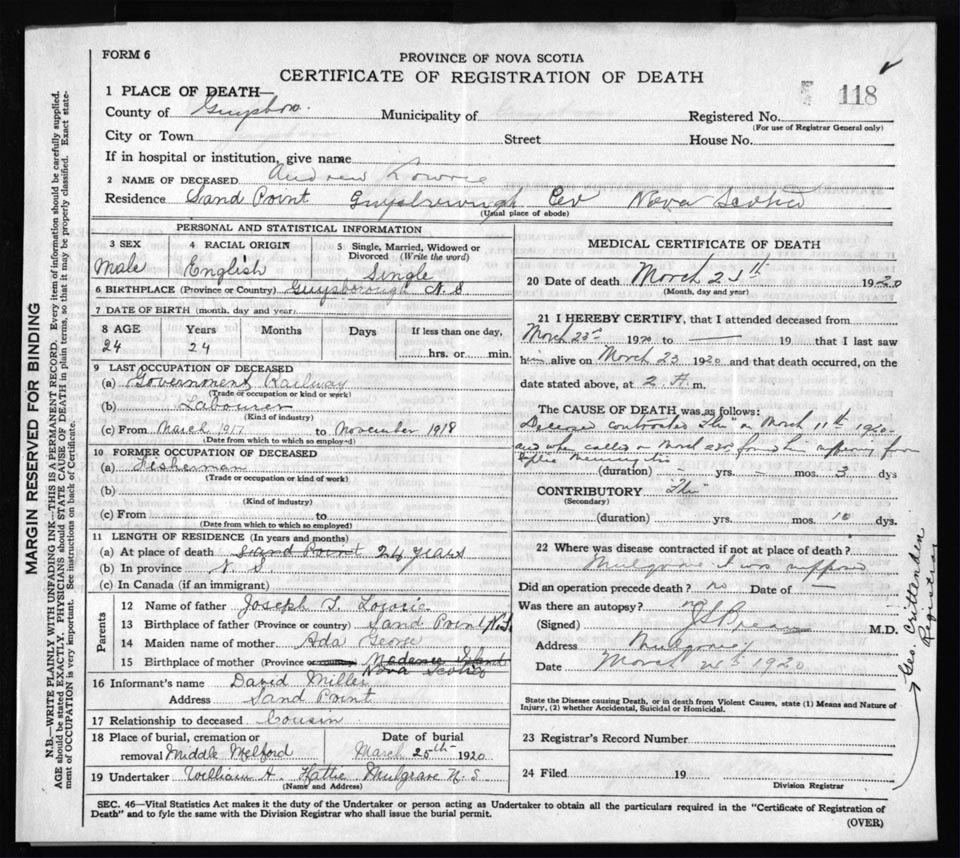 FORM 6
PROVINCE OF NOVA SCOTIA
CERTIFICATE OF REGISTRATION OF DEATH
118
1 PLACE OF DEATH—
County of Guysboro. Municipality of Registered No.
(For use of Registrar General only)
City or Town Street House No.
If in hospital or institution, give name
2 NAME OF DECEASED Andrew Lowrie
Residence Sand Point Guysborough Co Nova Scotia
(Usual place of abode)
PERSONAL AND STATISTICAL INFORMATION
3 SEX 4 RACIAL ORIGIN 5 Single, Married, Widowed or Divorced (Write the word)
Male English Single
6 BIRTHPLACE (Province or Country) Guysborough N. S.
7 DATE OF BIRTH (month, day and year)
8 AGE Years Months Days If less than one day,
24 24 hrs. or min.
9 LAST OCCUPATION OF DECEASED
(a) Government Railway
(Trade or occupation or kind or work)
(b) Labourer
(Kind of industry)
(c) From March 1917 to November 1918
(Date from which to which so employed)
10 FORMER OCCUPATION OF DECEASED
(a) Fisherman
(Trade or occupation or kind of work)
(b)
(Kind of industry)
(c) From to
(Date from which to which so employed)
11 LENGTH OF RESIDENCE (In years and months)
(a) At place of death Sand Point 24 years
(b) In province N. S.
(c) In Canada (if an immigrant)
Parents
12 Name of father Joseph S. Lowrie
13 Birthplace of father (Province or country) Sand Point N.S.
14 Maiden name of mother Ada George
15 Birthplace of mother (Province or country) Madence Island
Nova Scotia
16 Informant's name David Miller
Address Sand Point
17 Relationship to deceased Cousin
18 Place of burial, cremation or Date of burial
removal Middle Melford March 25th 1920
19 Undertaker William H. Hattie Mulgrave N. S
(Name and Address)
MEDICAL CERTIFICATE OF DEATH
20 Date of death March 25th 1920
(Month, day and year)
21 I HEREBY CERTIFY, that I attended deceased from
March 23rd 1920 to — 19 — that I last saw
him alive on March 23 1920 and that death occurred, on
date stated above, at 2 A. m.
The CAUSE OF DEATH was as follows:
Deceased contracted "Flu" on March 11th 1920
and when called March 23rd found him suffering from
Meningitis
(duration) — yrs. — mos. 3 dys
CONTRIBUTORY "Flu"
(Secondary)
(duration) yrs. mos. 10 dys.
22 Where was disease contracted if not at place of death?
Mulgrave it was supposed
Did an operation precede death? no Date of
Was there an autopsy? no
(Signed) M.D.
Address Mulgrave
Date March 24th 1920
State the Disease causing Death, or in death from Violent Causes, state (1) Means and Nature of
Injury, (2) whether Accidental, Suicidal or Homicidal.
23 Registrar's Record Number
24 Filed 19
Division Registrar
Geo. Crittenden
Registrar
SEC. 46—Vital Statistics Act makes it the duty of the Undertaker or person acting as Undertaker to obtain all the particulars required in the "Certificate of Registration of
Death" and to fyle the same with the Division Registrar who shall issue the burial permit.
(OVER)
MARGIN RESERVED FOR BINDING
N.B.—WRITE PLAINLY WITH UNFADING INK—THIS IS A PERMANENT RECORD. Every item of information should be carefully supplied.
AGE should be stated EXACTLY. PHYSICIANS should STATE CAUSE OF DEATH in plain terms, so that it may be properly classified. Exact state-
ment of OCCUPATION is very important. See instructions on back of Certificate.